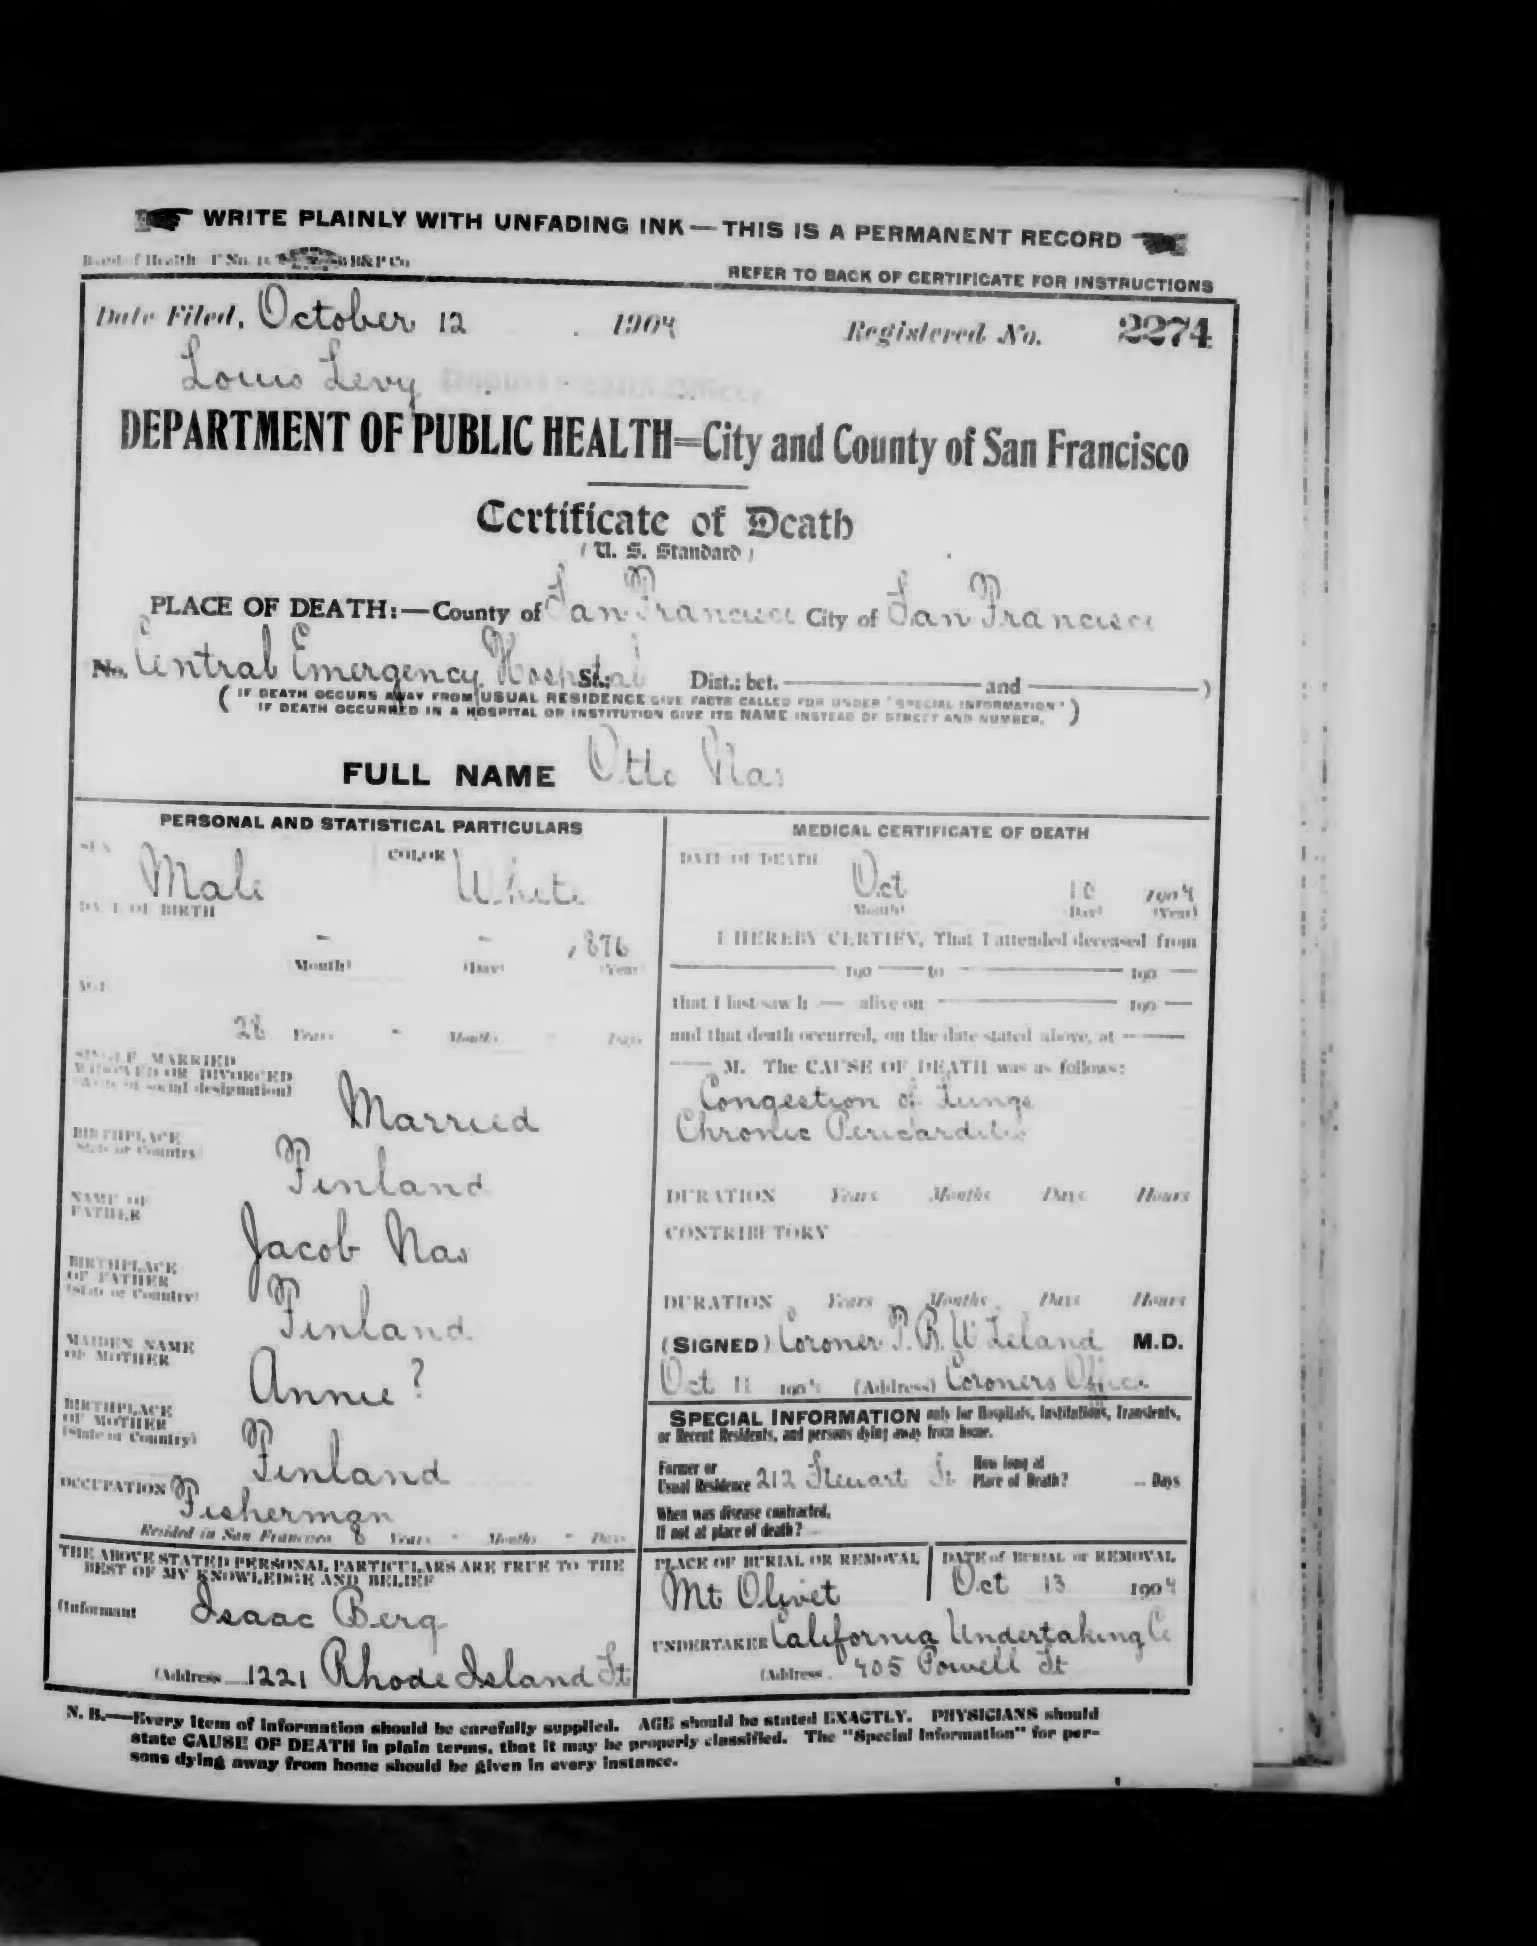 WRITE PLAINLY WITH UNFADING INK — THIS IS A PERMANENT RECORD
Board of Health F No. B&P Co
REFER TO BACK OF CERTIFICATE FOR INSTRUCTIONS
Date Filed, October 12 1904 Registered No. 2274
Louis Levy Deputy Health Officer
DEPARTMENT OF PUBLIC HEALTH=City and County of San Francisco
Certificate of Death
(U. S. Standard)
PLACE OF DEATH:—County of San Francisco City of San Francisco
No. Central Emergency Hospital St.; Dist.; bet. — and — )
( IF DEATH OCCURS AWAY FROM USUAL RESIDENCE GIVE FACTS CALLED FOR UNDER "SPECIAL INFORMATION"
IF DEATH OCCURRED IN A HOSPITAL OR INSTITUTION GIVE ITS NAME INSTEAD OF STREET AND NUMBER. )
FULL NAME Otto Nas
PERSONAL AND STATISTICAL PARTICULARS
SEX Male COLOR White
DATE OF BIRTH
- - 1876
(Month) (Day) (Year)
AGE
28 Years - Months - Days
SINGLE, MARRIED
WIDOWED OR DIVORCED
(Write in social designation)
Married
BIRTHPLACE
(State or Country)
Finland
NAME OF
FATHER
Jacob Nas
BIRTHPLACE
OF FATHER
(State or Country)
Finland
MAIDEN NAME
OF MOTHER
Annie ?
BIRTHPLACE
OF MOTHER
(State or Country)
Finland
OCCUPATION Fisherman
Resided in San Francisco 8 Years - Months - Days
THE ABOVE STATED PERSONAL PARTICULARS ARE TRUE TO THE
BEST OF MY KNOWLEDGE AND BELIEF
(Informant Isaac Berg
(Address 1221 Rhode Island St
MEDICAL CERTIFICATE OF DEATH
DATE OF DEATH
Oct 10 1904
(Month) (Day) (Year)
I HEREBY CERTIFY, That I attended deceased from
— 190 — to — 190 —
that I last saw h — alive on — 190 —
and that death occurred, on the date stated above, at —
— M. The CAUSE OF DEATH was as follows:
Congestion of Lungs
Chronic Pericarditis
DURATION Years Months Days Hours
CONTRIBUTORY
DURATION Years Months Days Hours
(SIGNED) Coroner T. B. W. Leland M.D.
Oct 11 1904 (Address) Coroners Office
SPECIAL INFORMATION only for Hospitals, Institutions, Transients,
or Recent Residents, and persons dying away from home.
Former or
Usual Residence 212 Steuart St
How long at
Place of Death? -- Days
When was disease contracted,
If not at place of death?
PLACE OF BURIAL OR REMOVAL
Mt Olivet
DATE of BURIAL or REMOVAL
Oct 13 1904
UNDERTAKER California Undertaking Co
(Address 405 Powell St
N. B.—Every item of information should be carefully supplied. AGE should be stated EXACTLY. PHYSICIANS should
state CAUSE OF DEATH in plain terms, that it may be properly classified. The "Special Information" for per-
sons dying away from home should be given in every instance.